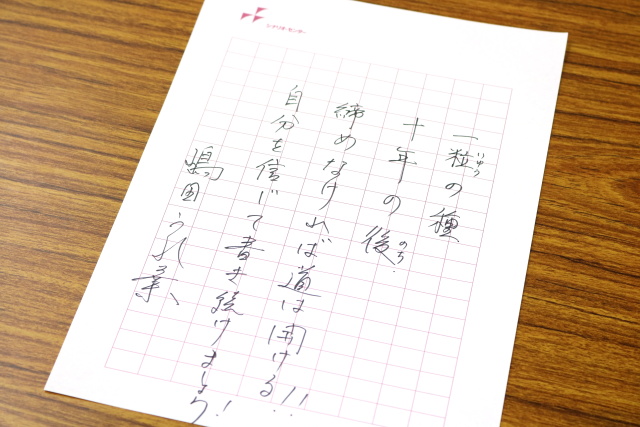 シナリオ・センター
一粒の種
十年の後
のち
締めなければ道は開ける!!
自分を信じて書き続けましょう!
嶋田うれ葉